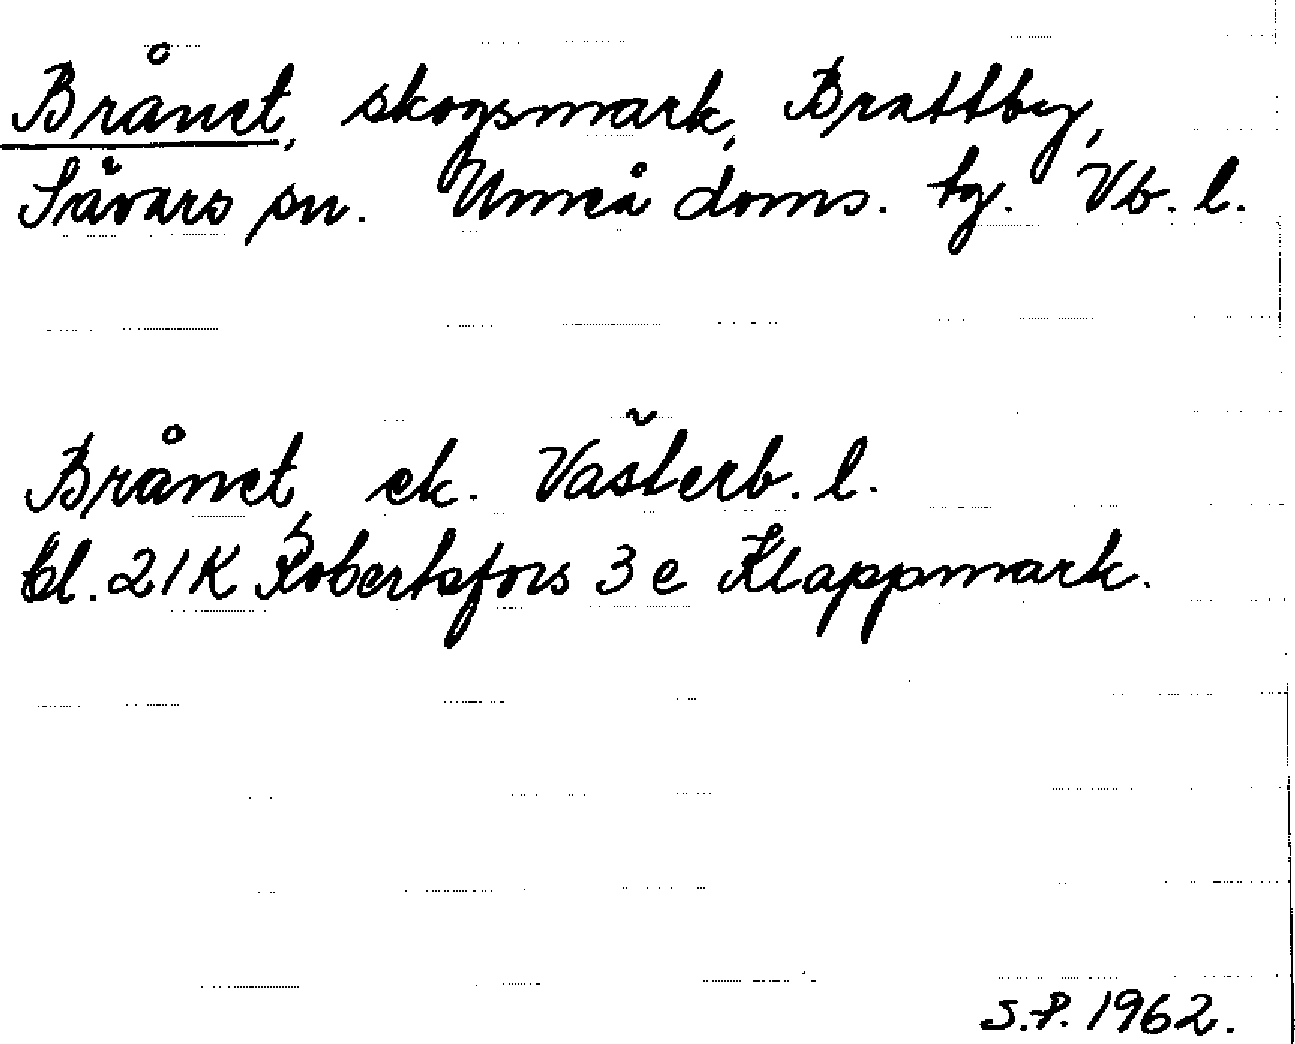 Brånet, skogsmark, Brattby,
Sävars sn. Umeå doms. tg. Vb. l.
Brånet, ek. Västerb. l.
bl. 21K Robertsfors 3 e Klappmark.
S.P. 1962.